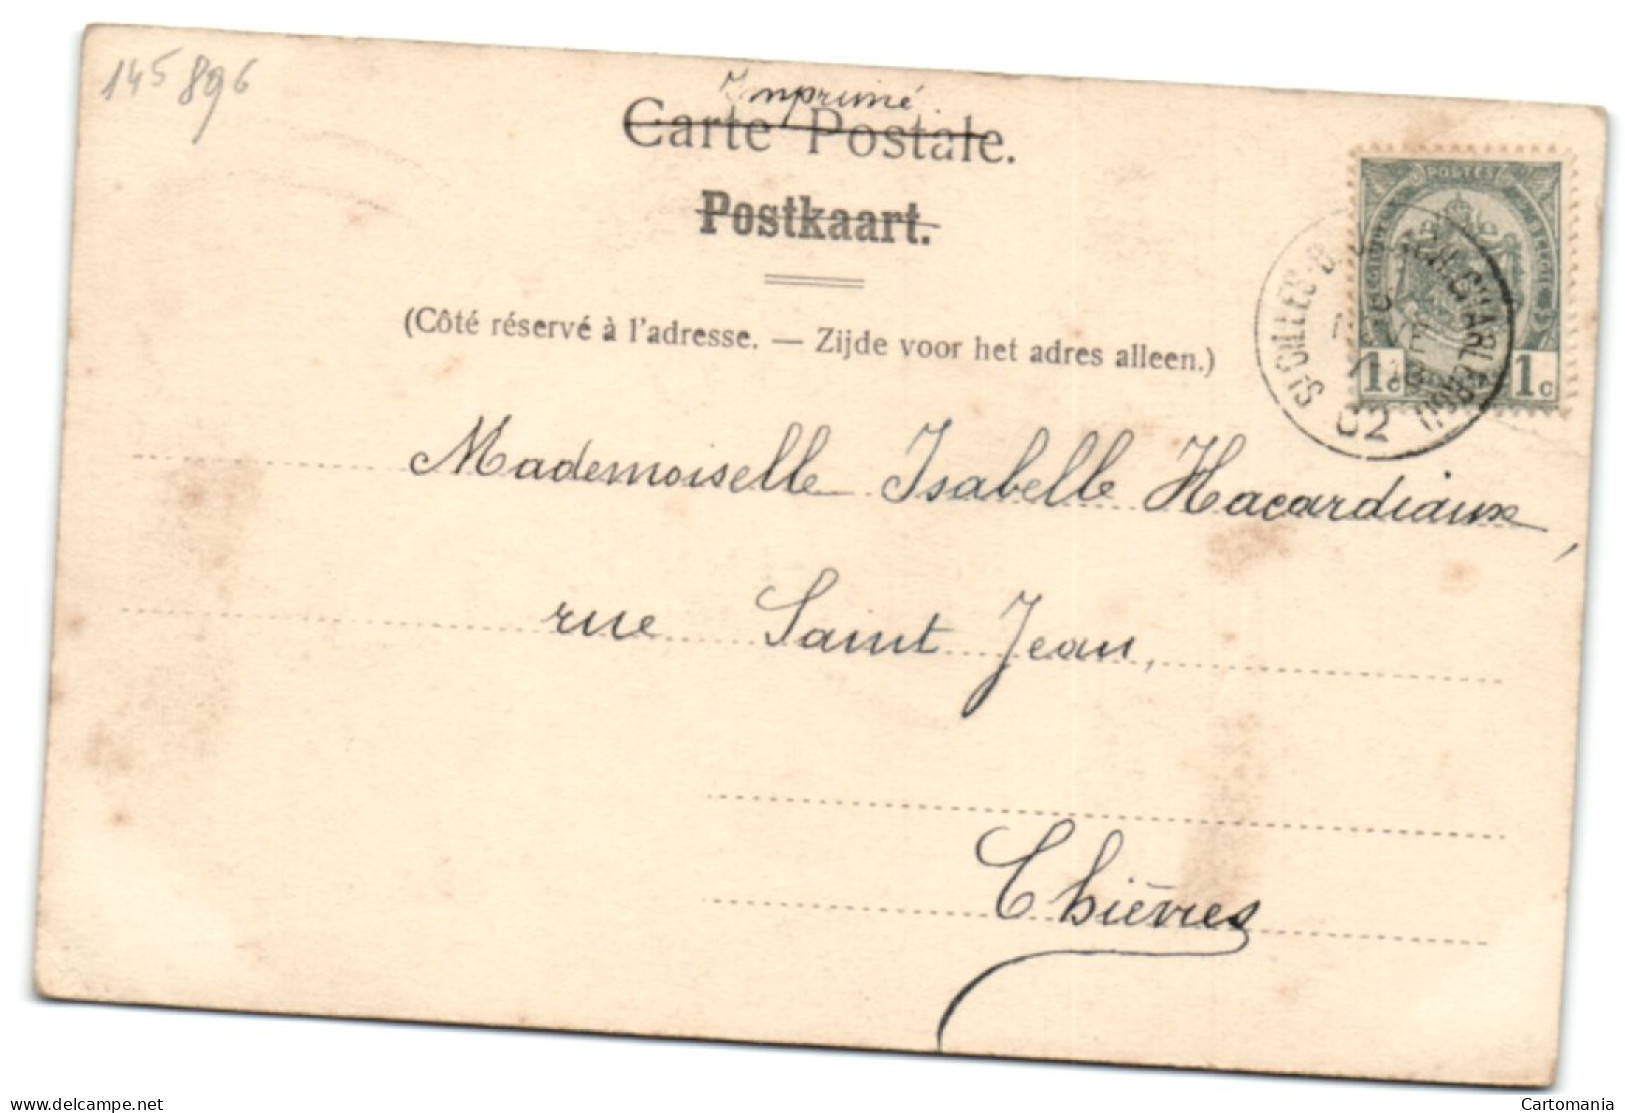 145896
Imprimé.
Carte Postale.
Postkaart.
(Côté réservé à l'adresse. — Zijde voor het adres alleen.)
POSTES
1c 1c
02
Mademoiselle Isabelle Hacardiaux,
rue Saint Jean,
Chièvres
delcampe.net
Cartomania